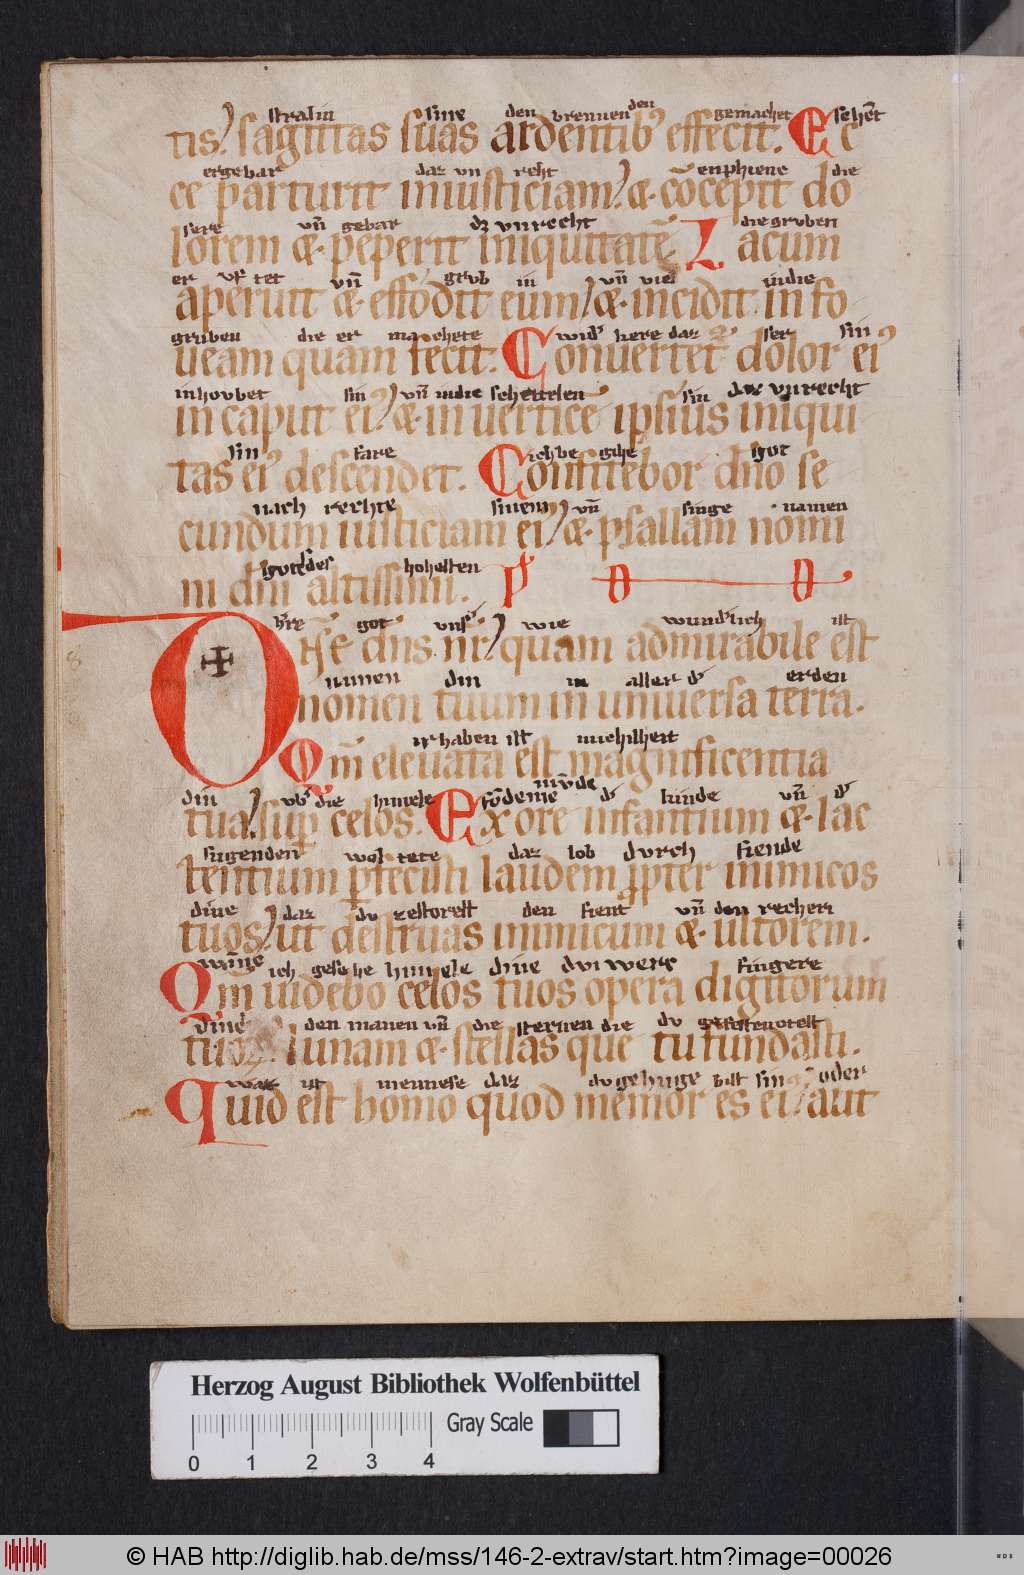 stralin sine den brennen den gemachet sehēt
tis. sagittas suas ardentibꝰ effecit. Ec
ergebar daz vn reht enphiene die
ce parturit iniusticiam. & cōcepit do
sere vn̄ gebar dz vnrecht die gruben
lorem & peperit iniquitatē Lacum
er vf tet vn̄ grub in vn̄ viel in die
aperuit & effodit eum. & incidit in fo
gruben die er machete wid͛ kere daz ser sin
ueam quam fecit. Conuertet͛ dolor eiꝰ
in houbet sin vn̄ in die scheitelen sin daz vnrecht
in caput eiꝰ. & in uertice ipsius iniqui
sin fare ich be gihe got
tas eiꝰ descendet. Confitebor dn̄o se
nach rechte sinem vn̄ singe namen
cundum iusticiam eiꝰ. & psallam nomi
gotes des hohesten
ni dn̄i altissimi. Pˢ D D
h͛re got vnser wie wund͛lich ist
Dn̄e dn̄s nr̄. quam admirabile est
namen din in aller d͛ erden
nomen tuum in uniuersa terra.
irhaben ist michilheit
Qm̄ eleuata est magnificentia
din vb͛ die himele mūde
tua. suꝑ celos. Ex ore infantium & lac
fō deme d͛ kinde vn̄ d͛
sugenden wol tete daz lob durch fiende
tentium ꝑfecisti laudem ꝓpter inimicos
dine daz du zestorest den fient vn̄ den recher
tuos. ut destruas inimicum & ultorem.
wāne ich gesehe himele dine dvi werc fingere
Qm̄ uidebo celos tuos opera digitorum
diner den manen vn̄ die sternen die du gefestenotest
tuoꝝ. lunam & stellas que tu fundasti.
waz ist mennese daz du gehuge bist sin oder
Quid est homo quod memor es eiꝰ. aut
8
Herzog August Bibliothek Wolfenbüttel
Gray Scale
0 1 2 3 4
© HAB http://diglib.hab.de/mss/146-2-extrav/start.htm?image=00026
WDB